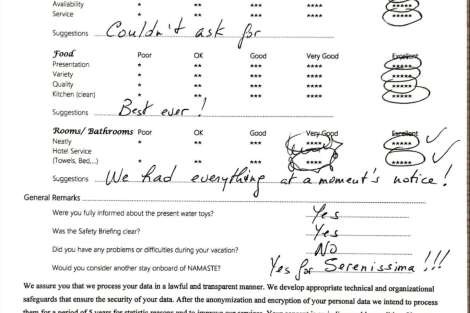 Availability * ** *** **** *****
Service * ** *** **** *****
Suggestions Couldn't ask for
Food Poor OK Good Very Good Excellent
Presentation * ** *** **** *****
Variety * ** *** **** *****
Quality * ** *** **** *****
Kitchen (clean) * ** *** **** *****
Suggestions Best ever!
Rooms/ Bathrooms Poor OK Good Very Good Excellent
Neatly * ** *** **** *****
Hotel Service
(Towels, Bed,...) * ** *** **** *****
Suggestions We had everything at a moment's notice!
General Remarks
Were you fully informed about the present water toys? Yes
Was the Safety Briefing clear? Yes
Did you have any problems or difficulties during your vacation? NO
Would you consider another stay onboard of NAMASTE? Yes for Serenissima!!!
We assure you that we process your data in a lawful and transparent manner. We develop appropriate technical and organizational
safeguards that ensure the security of your data. After the anonymization and encryption of your personal data we intend to process
them for a period of 5 years for statistic reasons and to improve our services.